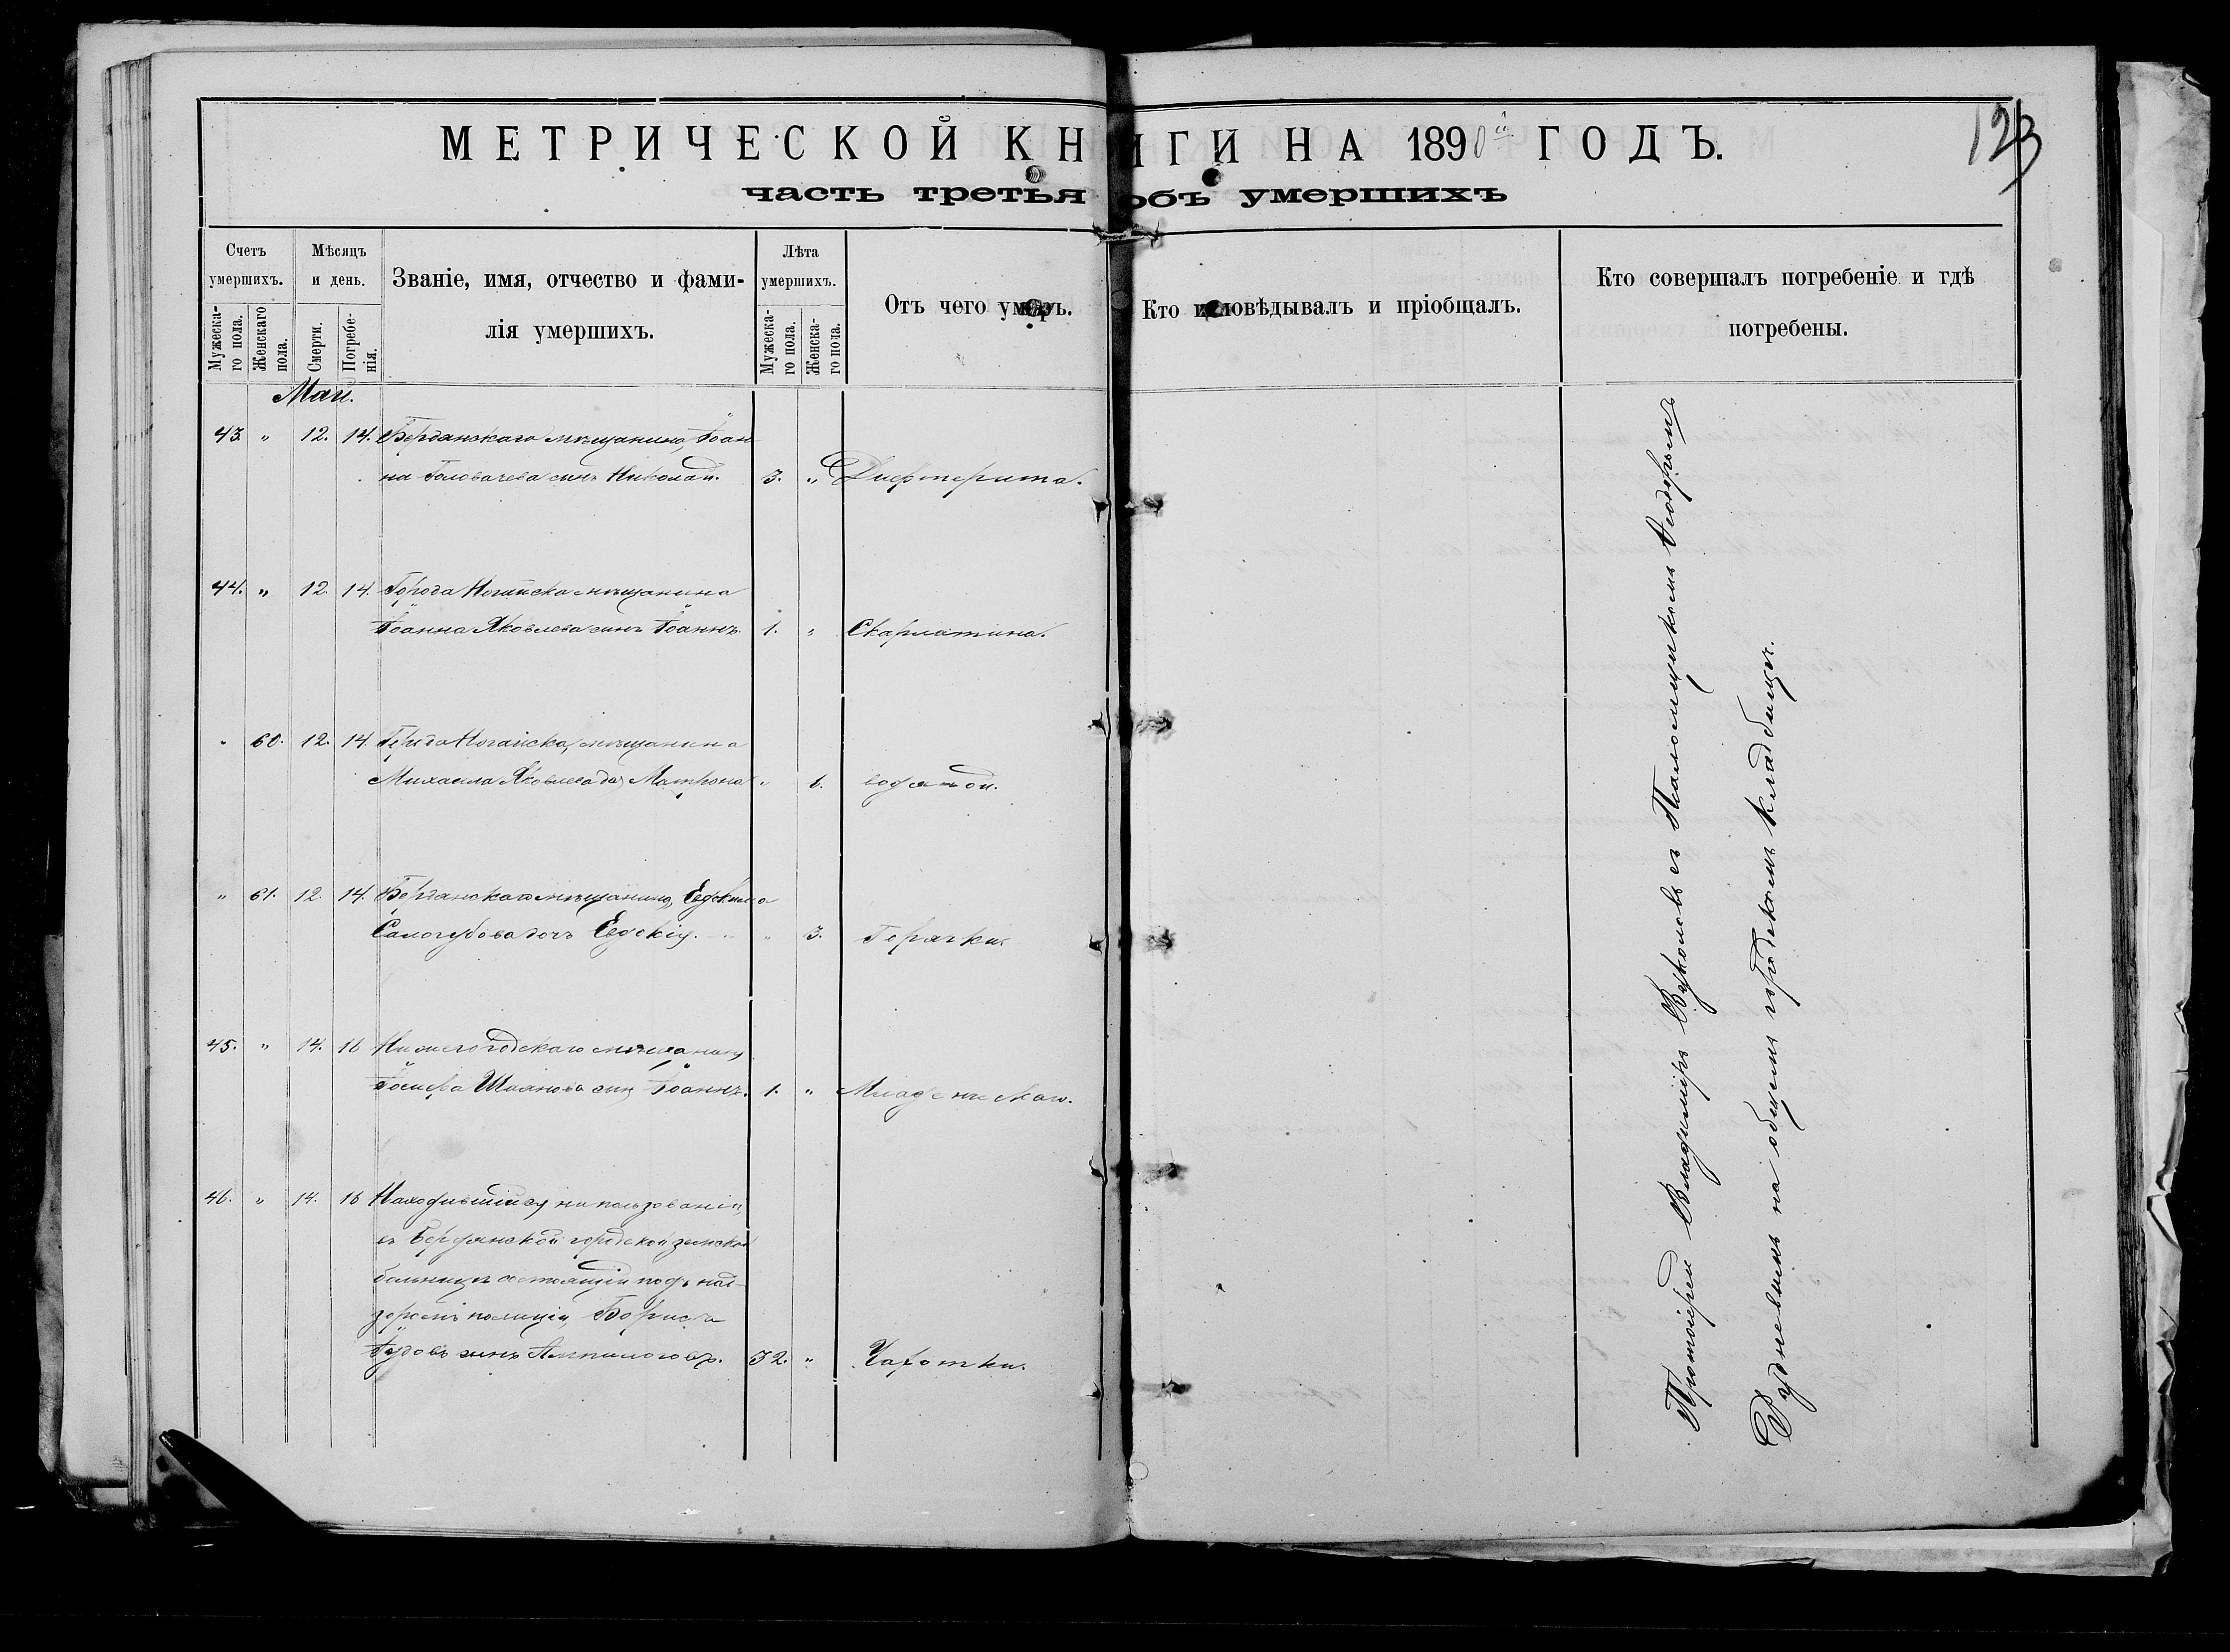 МЕТРИЧЕСКОЙ КНИГИ НА 1890й ГОДЪ.
123
часть третья объ умершихъ
Счетъ умершихъ.
Мужеска-го пола.
Женскаго пола.
Мѣсяцъ и день.
Смерти.
Погребе-нія.
Званіе, имя, отчество и фами-
лія умершихъ.
Лѣта умершихъ.
Мужеска-го пола.
Женска-го пола.
Отъ чего умеръ.
Кто исповѣдывалъ и пріобщалъ.
Кто совершалъ погребеніе и гдѣ
погребены.
Май.
43 " 12. 14. Бердянскаго мѣщанина, Іоан
на Головачева сынъ Николай. 3. " Дифтерита.
44. " 12. 14. Города Ногайска мѣщанина
Іоанна Яковлева сынъ Іоаннъ. 1. " Скарлатина.
" 60. 12. 14. Города Ногайска, мѣщанина
Михаила Яковлева доч Матрона " 1. водяной.
" 61. 12. 14. Бердянскаго мѣщанина,
дочь " 3. Горячки.
45. " 14. 16 Нижегородскаго мѣщанина
Іосифа сын Іоаннъ. 1. " Младенческаго.
46. " 14. 16 Находившійся на пользованіи,
въ Бердянской городской земской
больницѣ состоящій подъ над-
зоромъ полиціи, Бориса
сынъ 32. " Чахотки.
Протоіерей Владиміръ съ Псаломщикомъ Ѳеодоромъ
Рудневымъ на общемъ городскомъ кладбищѣ.